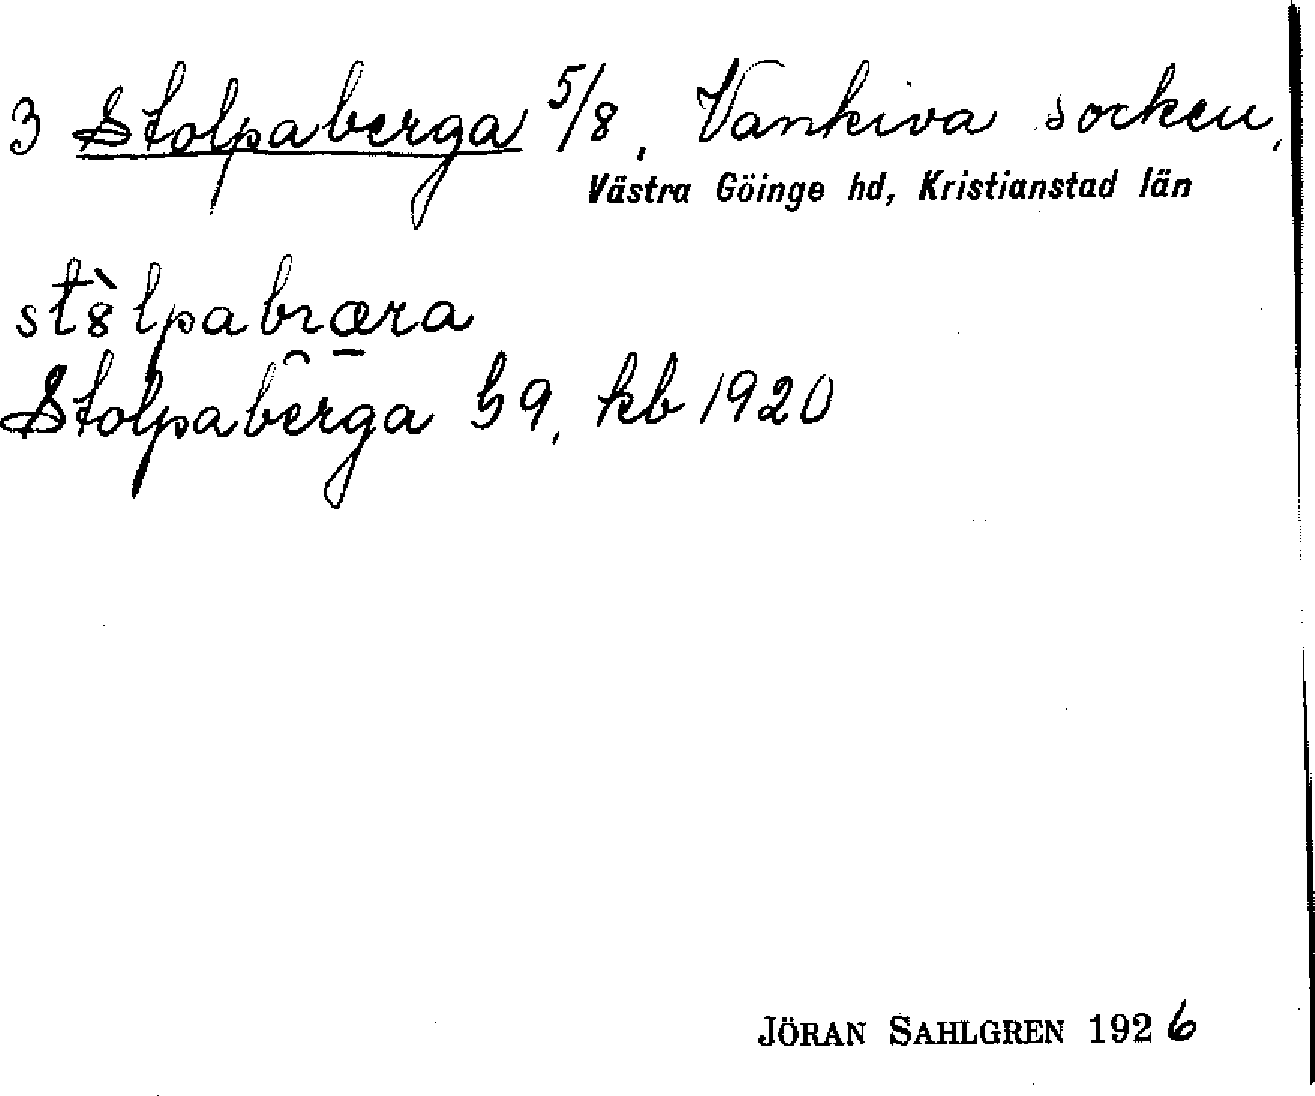 3 Stolpaberga 5/8, Vankiva socken,
Västra Göinge hd, Kristianstad län
st8̀lpabræra
Stolpaberga G9, kb 1920
JÖRAN SAHLGREN 1926